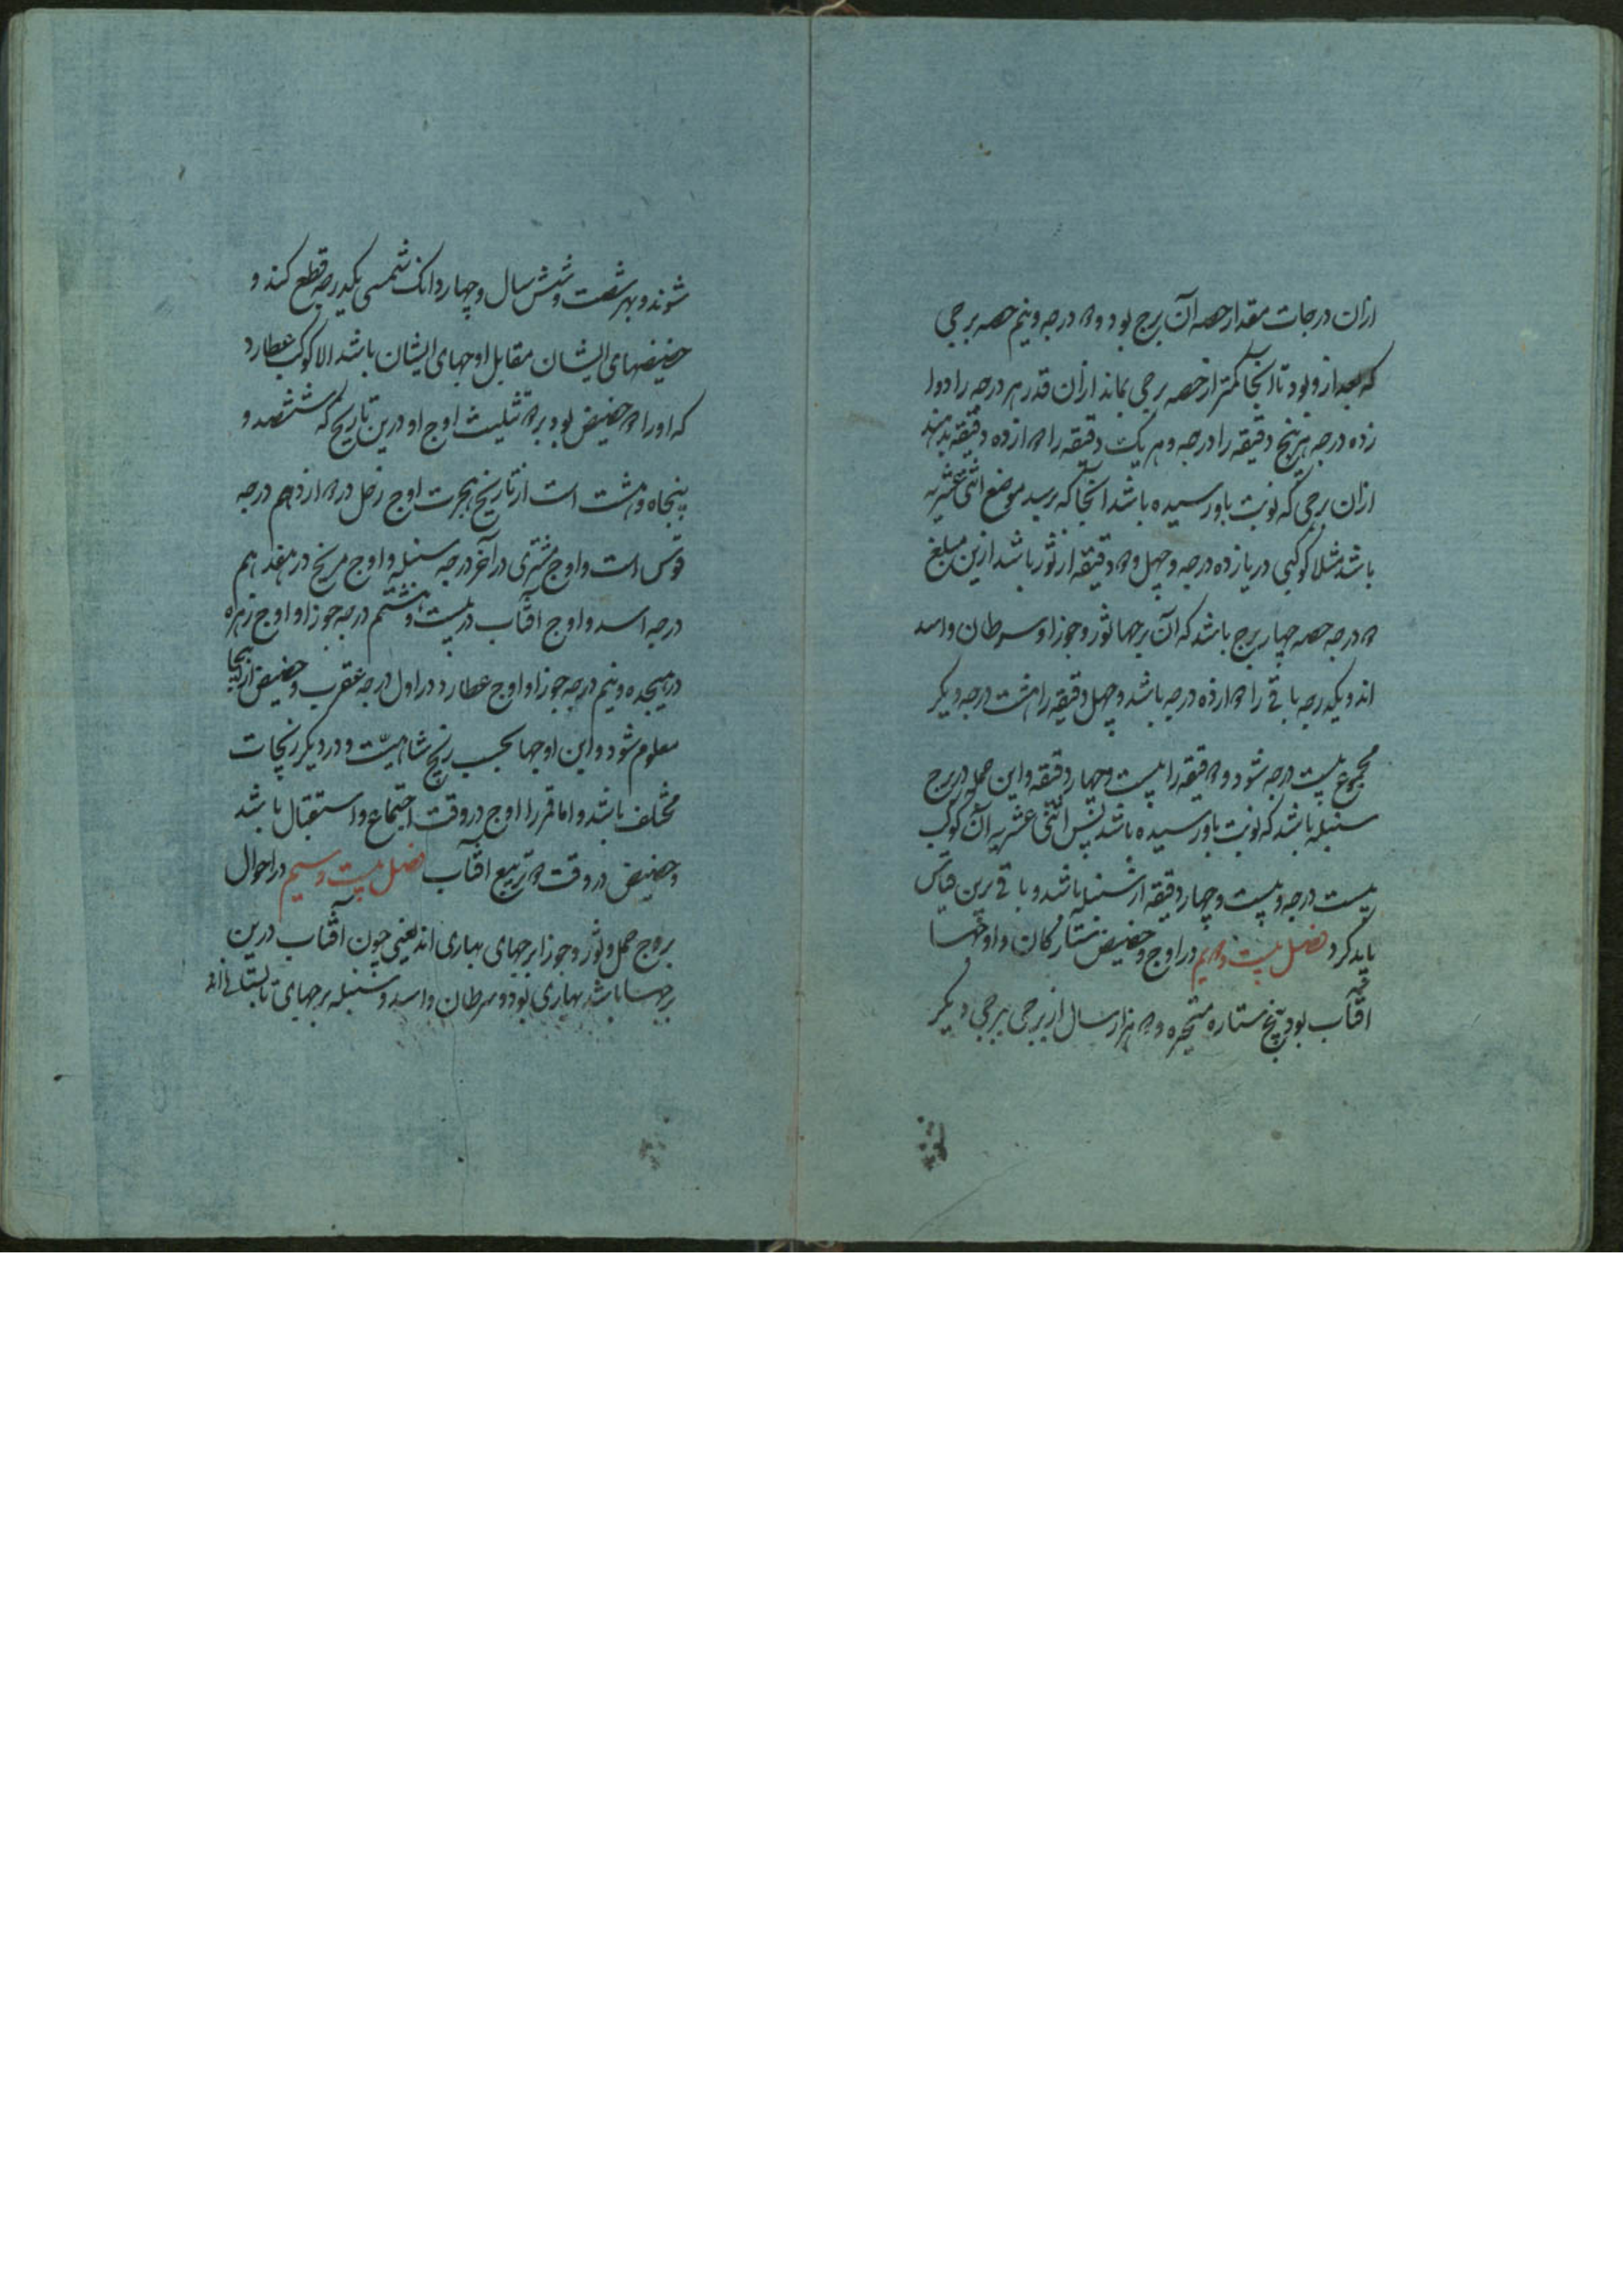 ازان درجات مقدار حصه آن برج بود و دو درجه و نیم حصه برجی
که بعد از و بود تا آنجا که کمتر از حصه برجی بماند ازان قدر هر درجه را دوا
زده درجه هر پنج دقیقه را درجه و هر یک دقیقه را دوازده دقیقه بدهند
ازان برجی که نوبت باو رسیده باشد آنجا که برسد موضع اثنی عشریه
باشد مثلا کوکبی در یازده درجه و چهل و دو دقیقه از ثور باشد ازین مبلغ
ده درجه حصه چهار برج باشد که آن برجها ثور و جوزا و سرطان و اسد
اند و یکدرجه باقی را دوازده درجه باشد و چهل دقیقه را هشت درجه دیگر
مجموع بیست درجه شود و دو دقیقه را بیست و چهار دقیقه و این جمله در برج
سنبله باشد که نوبت باو رسیده باشد پس اثنی عشریه آن کوکب
بیست درجه و بیست و چهار دقیقه از سنبله باشد و باقی برین قیاس
باید کرد فصل بیست و دویم در اوج و حضیض ستارکان و اوجها
آفتاب بود و پنج ستاره متحیره و دو هزار سال از برجی ببرجی دیگر
شوند و بهر شصت و شش سال و چهار دانک شمسی یکدرجه قطع کنند و
حضیضهای ایشان مقابل اوجهای ایشان باشد الا کوکب عطارد
که او را دو حضیض بود بر دو تثلیث اوج او درین تاریخ که ششصد و
پنجاه و هشت است از تاریخ هجرت اوج زحل در دوازدهم درجه
قوس است و اوج مشتری در آخر درجه سنبله و اوج مریخ در هفدهم
درجه اسد و اوج آفتاب در بیست و هشتم درجه جوزا و اوج زهره
در هیجده و نیم درجه جوزا و اوج عطارد در اول درجه عقرب و حضیض از اینجا
معلوم شود و این اوجها بحسب زیج شاهیست و در دیکر زیجات
مختلف باشد و اما قمر را اوج در وقت اجتماع و استقبال باشد
و حضیض در وقت دو تربیع آفتاب فصل بیست و سیم در احوال
بروج حمل و ثور و جوزا برجهای بهاری اند یعنی چون آفتاب درین
برجها باشد بهاری بود و سرطان و اسد و سنبله برجهای تابستانی اند